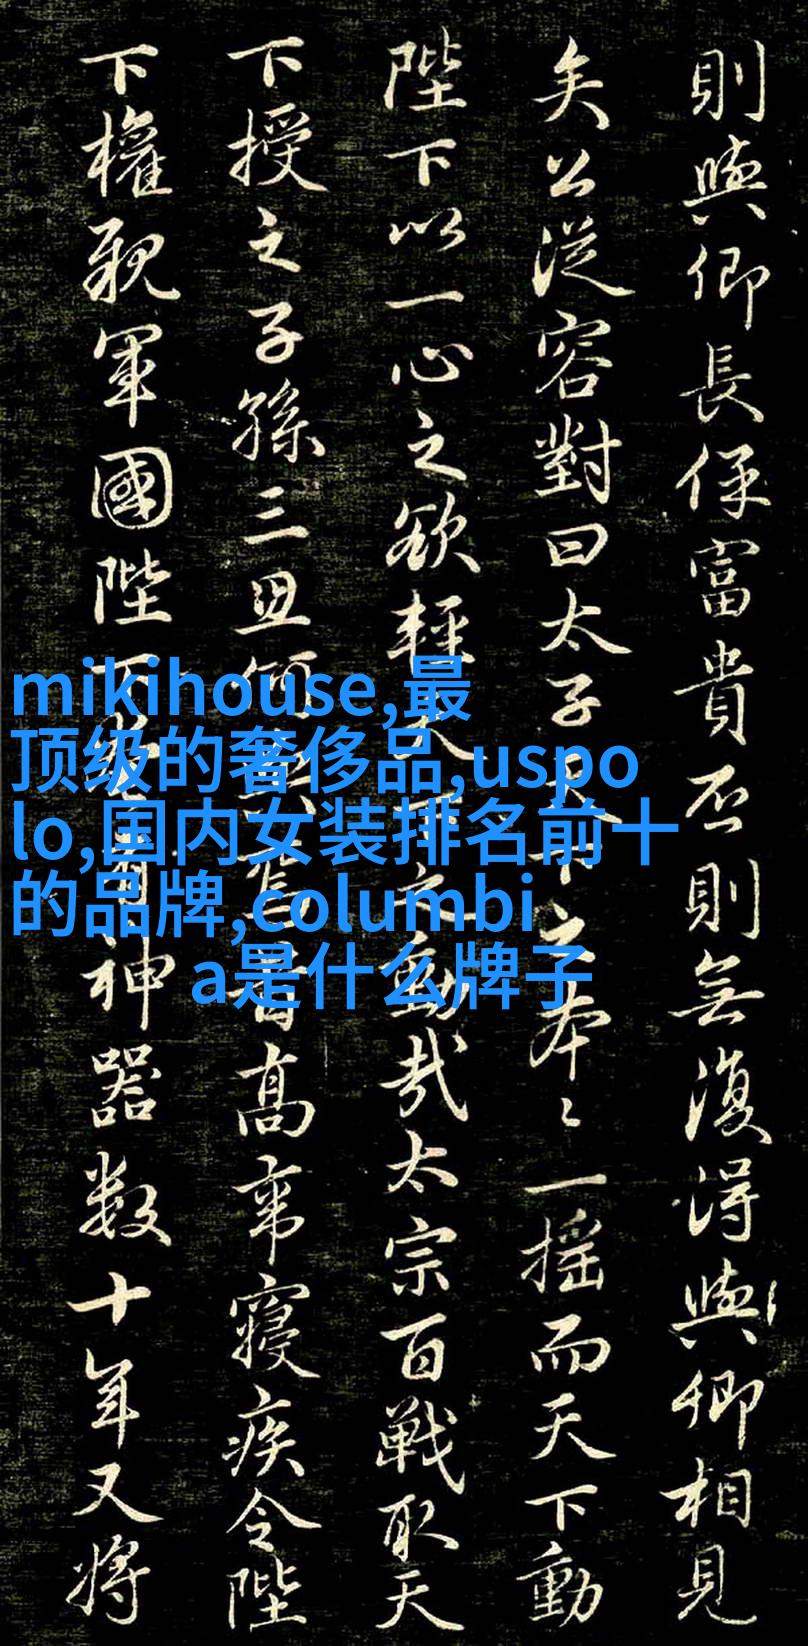 則與卿長保富貴否則無復得與卿相見
矣公從容對曰太子天下之本〻一搖而天下動
陛下以一心之欲輕天下之動哉太宗百戰取天
下授之子孫三思何與焉昔高宗寢疾令陛
下權親軍國陛下奄有神器数十年又將
mikihouse,最
顶级的奢侈品,uspo
lo,国内女装排名前十
的品牌,columbi
a是什么牌子